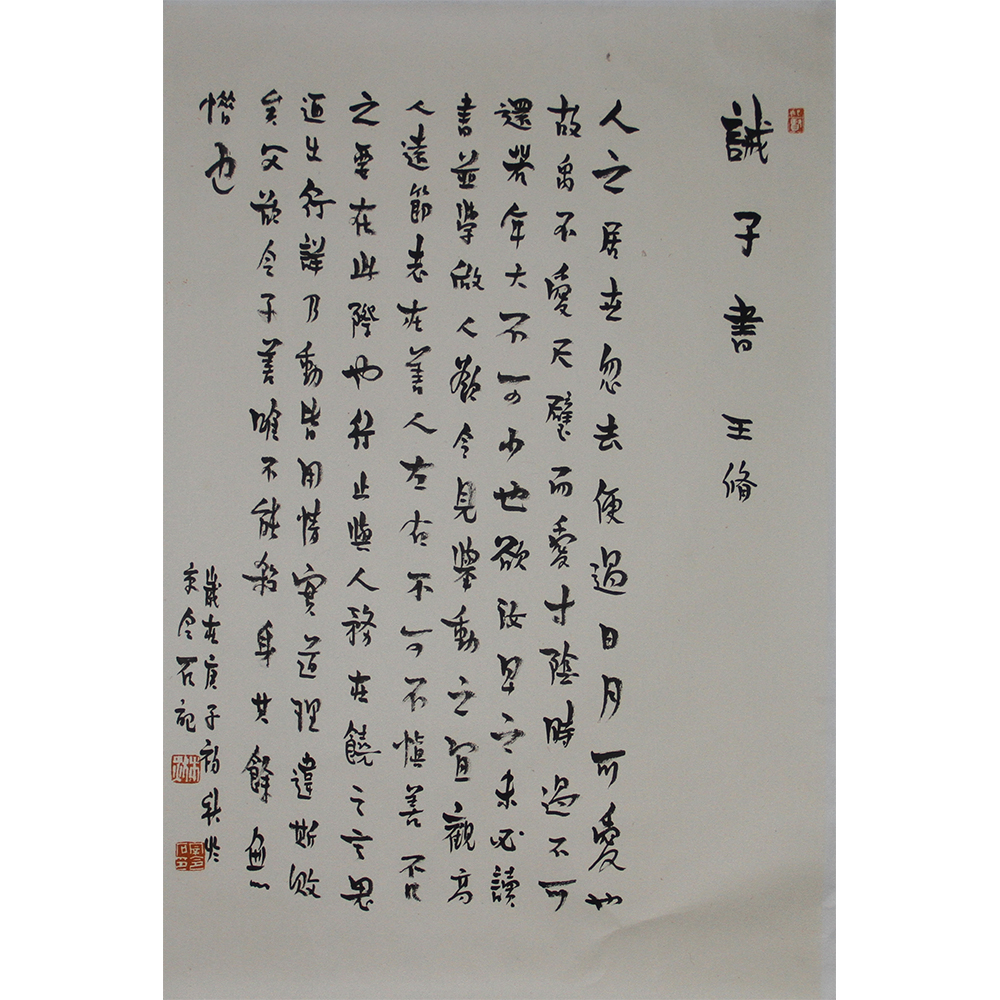 誡子書 王脩
人之居世忽去便過日月可愛也
故禹不愛尺璧而愛寸陰時過不可
還若年大不可少也欲汝早之未必讀
書並學做人欲令見舉動之宜觀高
人遠節志在善人左右不可不慎善否
之要在此際也行止與人務在饒之言思
迺出行詳乃動皆用情實道理違斯敗
矣父欲令子善唯不能殺身其餘無
惜也
歲在庚子初秋於
京令石記